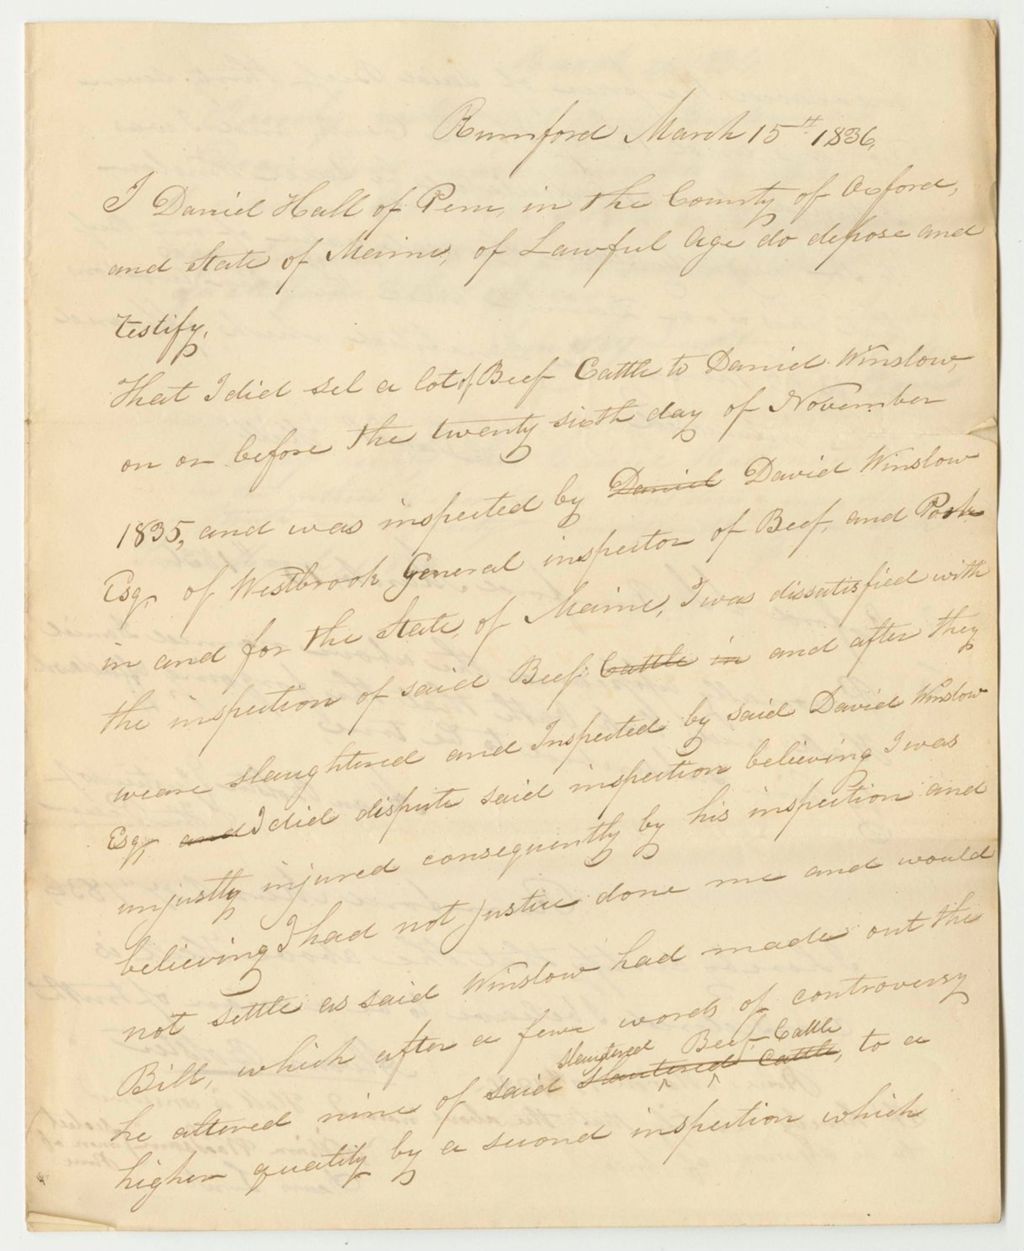 Rumford March 15th 1836,
I Daniel Hall of Peru, in the County of Oxford,
and State of Maine, of Lawful Age do depose and
testify,
That I did sel a lot of Beef Cattle to Daniel Winslow,
on or before the twenty sixth day of November
1835, and was inspected by Daniel David Winslow
Esq, of Westbrook General inspector of Beef, and Pork
in and for the State of Maine, I was dissatisfied with
the inspection of said Beef Cattle in and after they
weare slaughtered and Inspected by said David Winslow
Esq, and I did dispute said inspection believing I was
unjustly injured consequently by his inspection and
believing I had not justice done me and would
not settle as said Winslow had made out the
Bill, which after a few words of controversy
slautered Beef Cattle
he altered nine of said slautered Cattle, to a
higher quality by a second inspection which